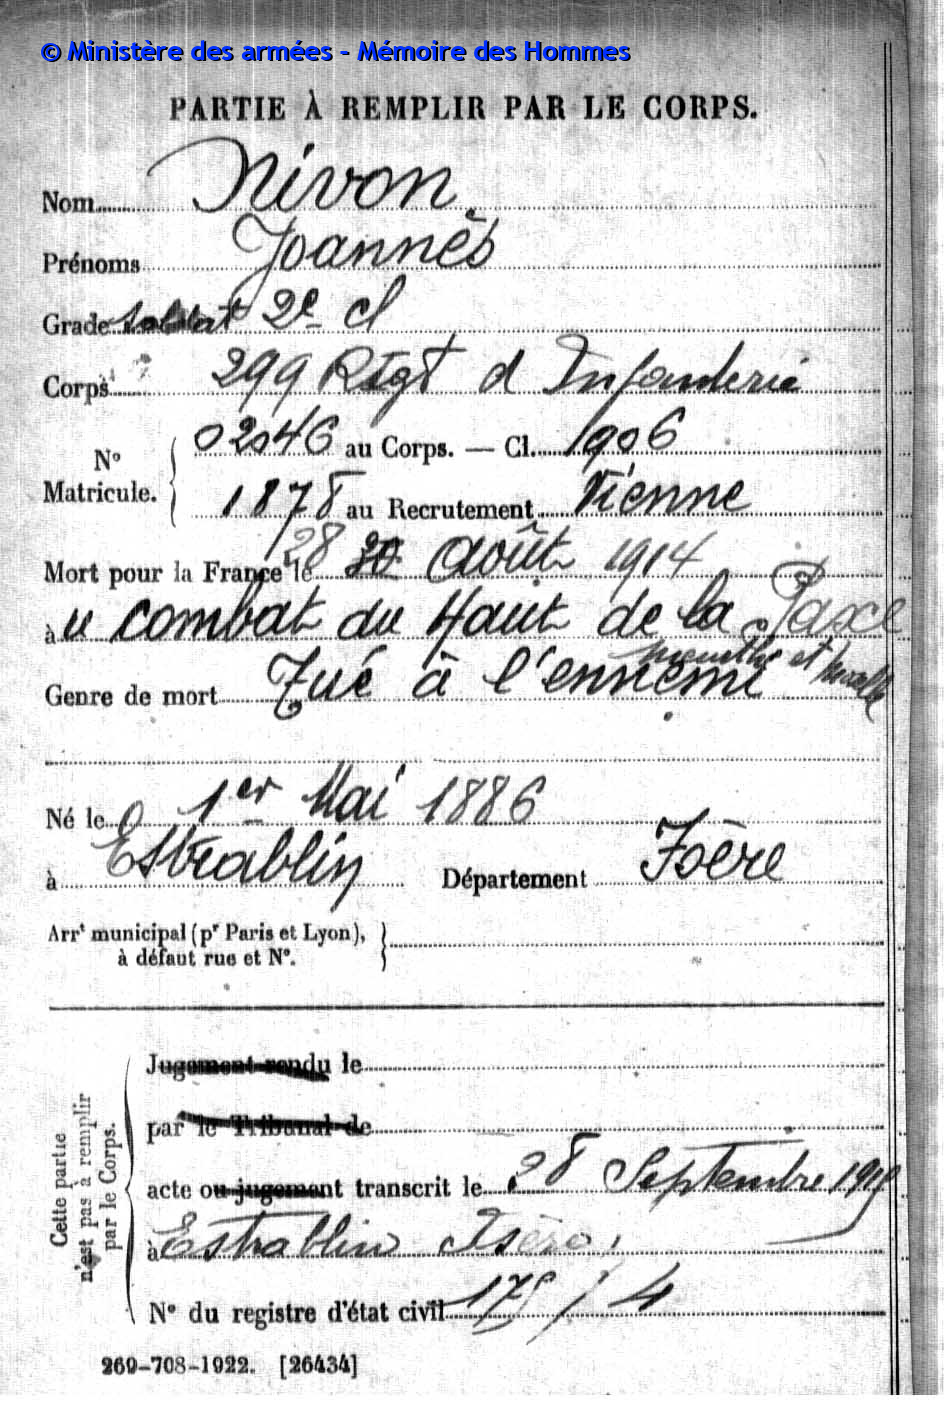 © Ministère des armées - Mémoire des Hommes
PARTIE À REMPLIR PAR LE CORPS.
Nom Nivon
Prénoms Joannès
Grade soldat 2e cl
Corps 299 Régt d Infanterie
No Matricule. 02046 au Corps. — Cl. 1906
1878 au Recrutement Vienne
Mort pour la France le 28 30 Août 1914
à u combat du Haut de la Paxe
Genre de mort Tué à l'ennemi
Né le 1er Mai 1886
à Estrablin Département Isère
Arrt municipal (pr Paris et Lyon),
à défaut rue et No.
Cette partie n'est pas à remplir par le Corps.
Jugement rendu le
par le Tribunal de
acte ou jugement transcrit le 28 Septembre
à Estrablin Isère
No du registre d'état civil
269-708-1922. [26434]